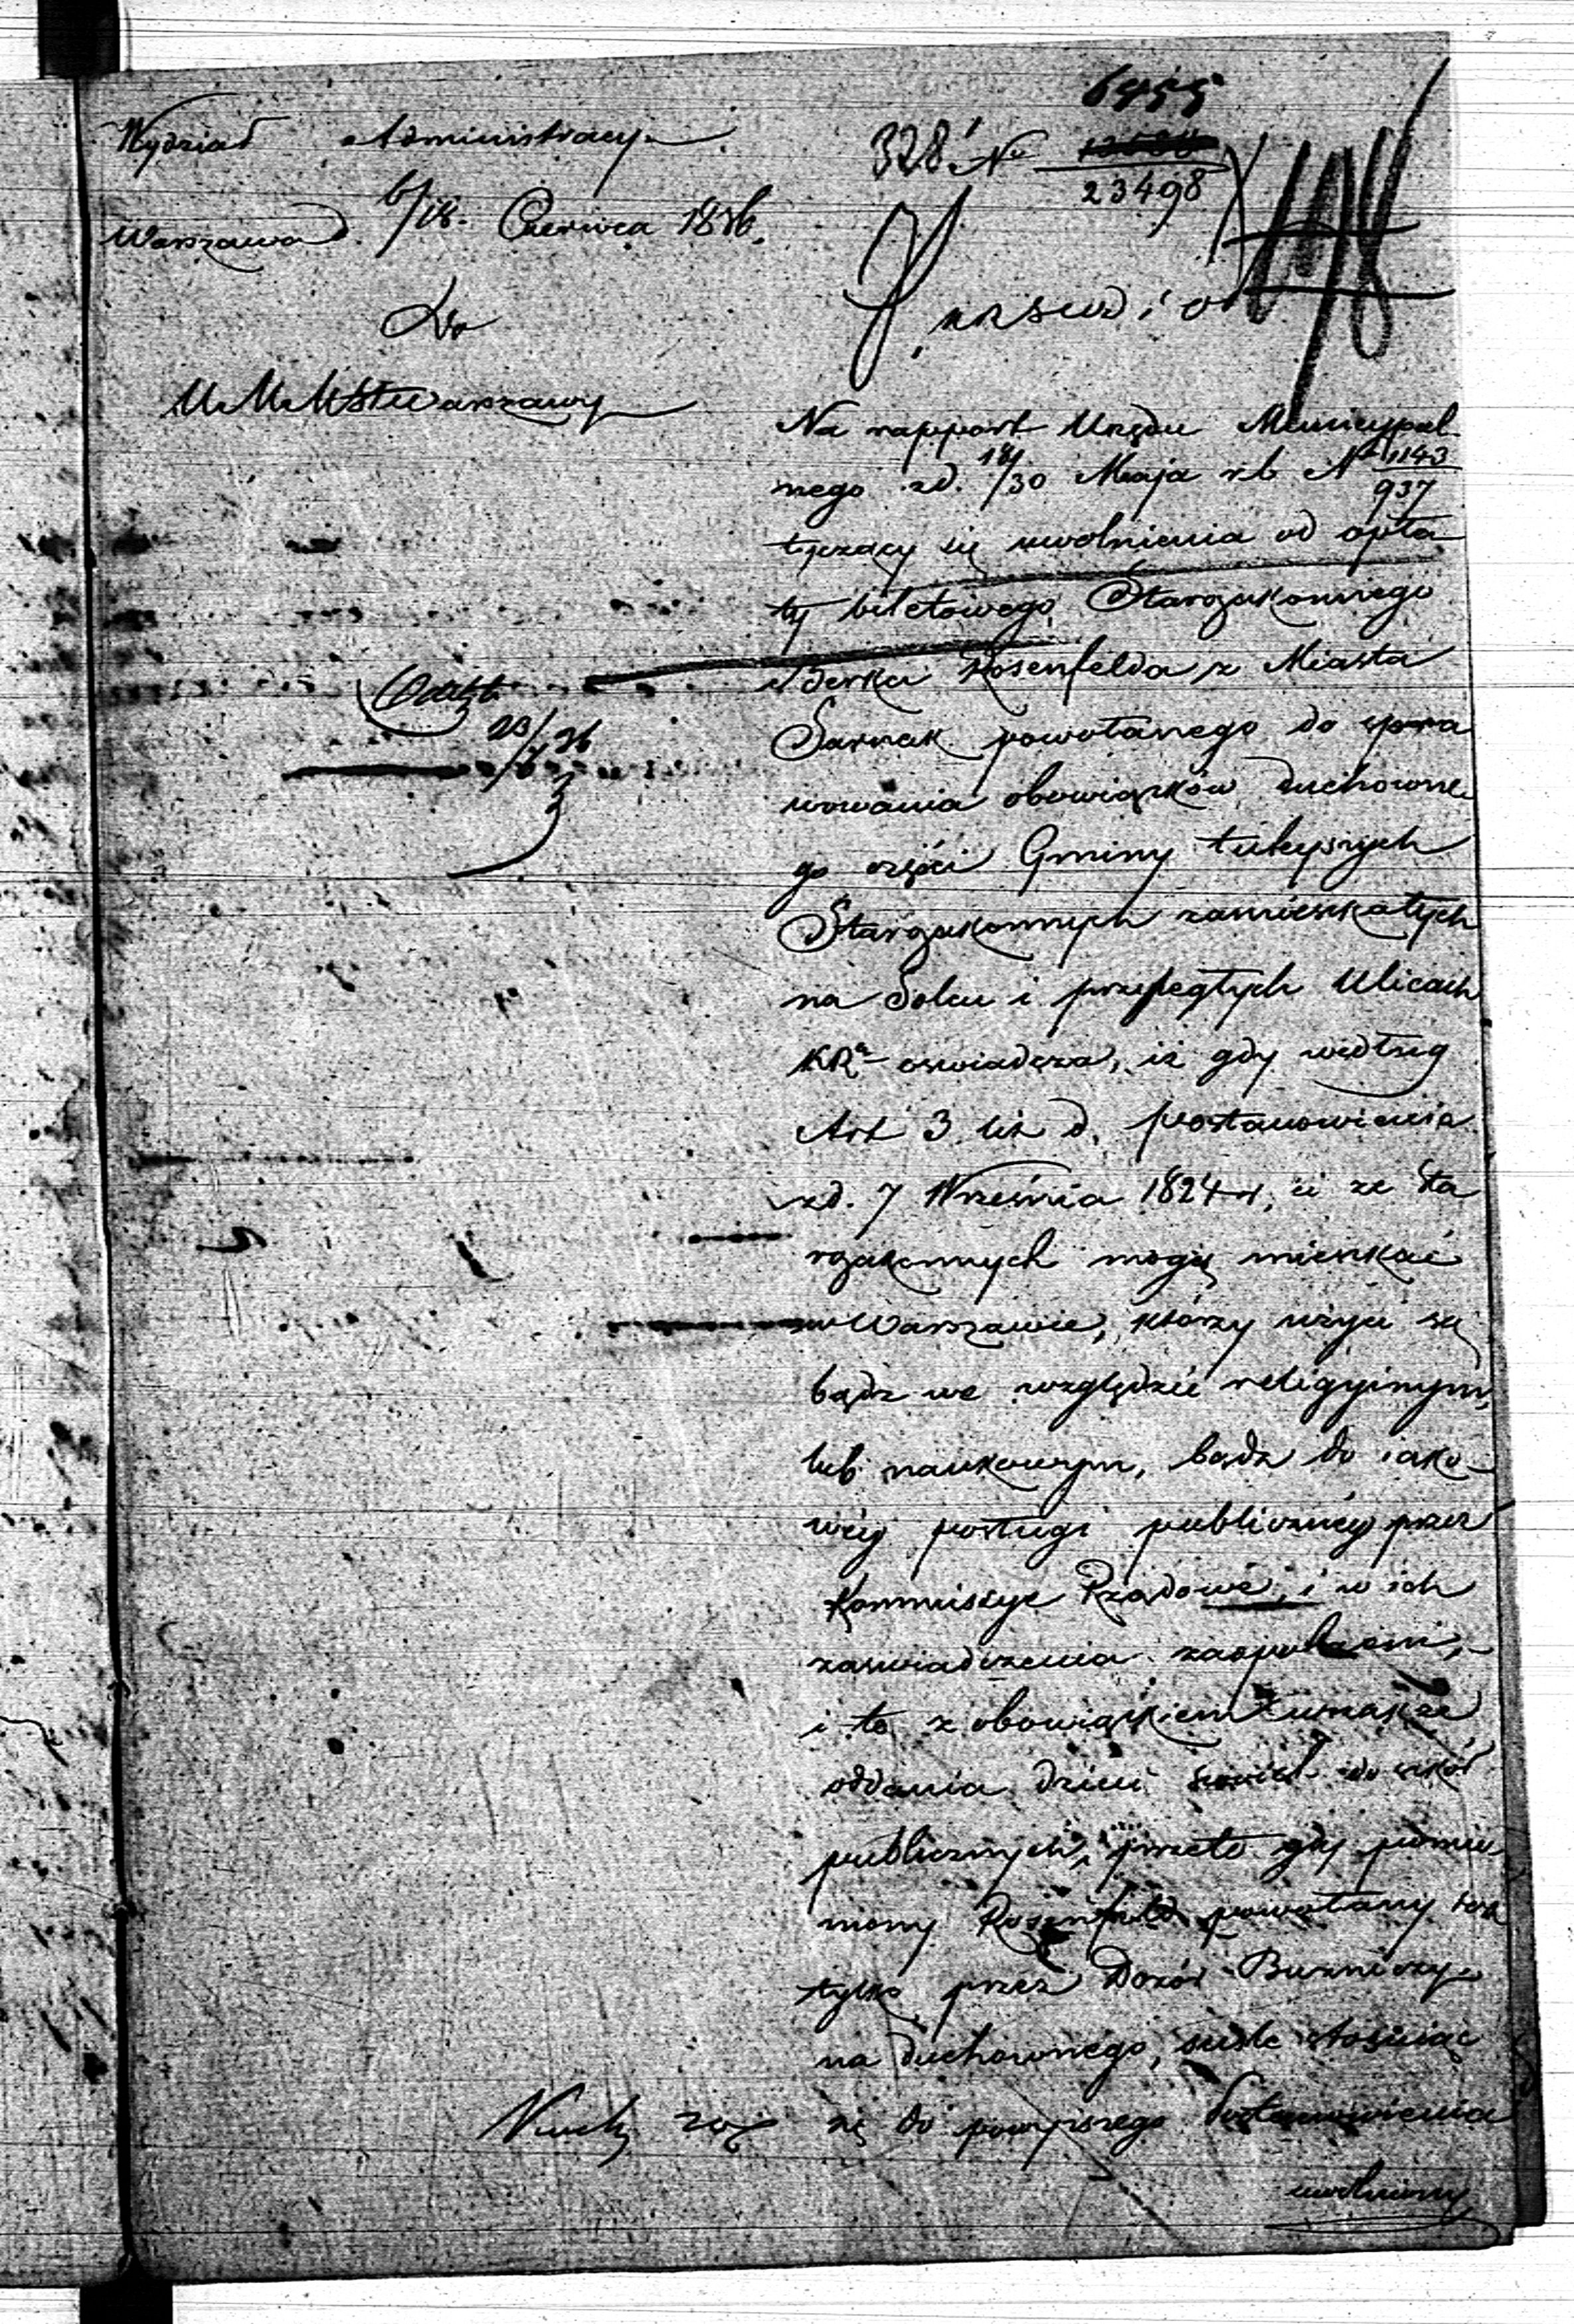 Wydział Administracyi.
328. No 6455
23498
Warszawa d. 6/18. Czerwca 1836.
Do
U. M. M. St. Warszawy
Na rapport Urzędu Municypal-
nego zd. 18/30 Maja r.b. No 1143/937
tyczący się uwolnienia od opła-
ty biletowego Starozakonnego
Berka Rosenfelda z Miasta
Sarnak powołanego do spra
wowania obowiązków duchowne-
go części Gminy tuteyszych
Starozakonnych zamieszkałych
na Solcu i przyległych Ulicach
KRa oswiadcza, iż gdy według
Art 3 lit d. postanowienia
zd. 7 Września 1824 r, ci ze sta
rozakonnych mogą mieszkać
w Warszawie, którzy użyci są
bądz we względzie religyinym,
lub naukowym, bądz do iako-
wey posługi publiczney przez
Kommissye Rządowe, i w ich
zaswiadczenia zaopatrzeni,
i to z obowiązkiem wszakże
oddania dzieci swoich do szkół
publicznych, przeto gdy pomie
niony Rosenfeld powołany iest
tylko przez Dozór Bużniczy
na duchownego, stosuiąc
się do powyższego Postanowienia
uwolniony
Odebr.
23/ 36